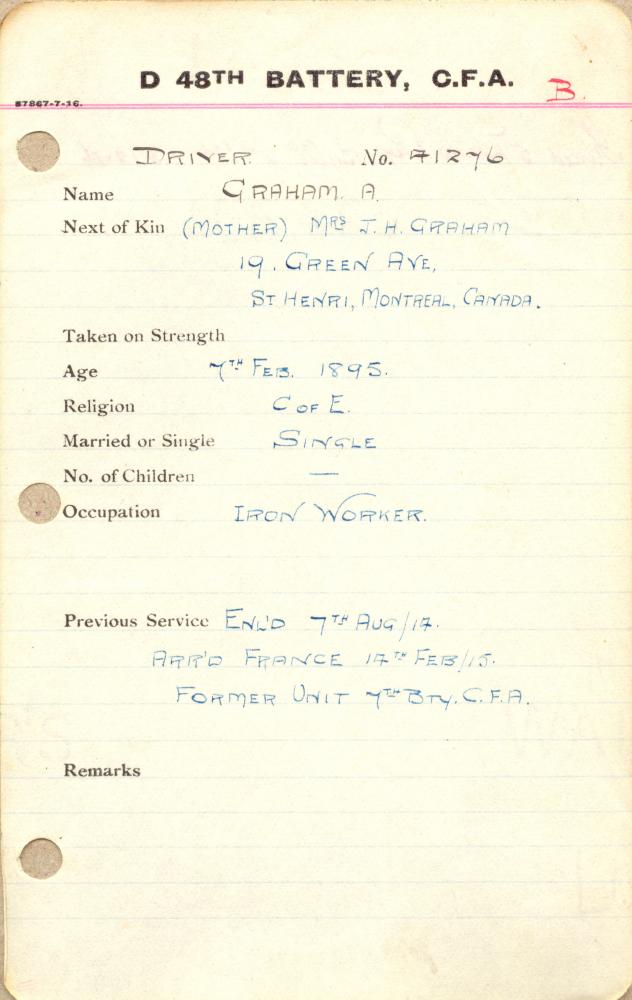 D 48TH BATTERY, C.F.A. B.
87867-7-16.
DRIVER No. 41276
Name GRAHAM. A.
Next of Kin (MOTHER) MRS J. H. GRAHAM
19. GREEN AVE,
ST HENRI, MONTREAL, CANADA.
Taken on Strength
Age 7TH FEB. 1895.
Religion C OF E.
Married or Single SINGLE
No. of Children —
Occupation IRON WORKER.
Previous Service ENL'D 7TH AUG/14.
ARR'D FRANCE 14TH FEB/15.
FORMER UNIT 7TH BTY. C.F.A.
Remarks